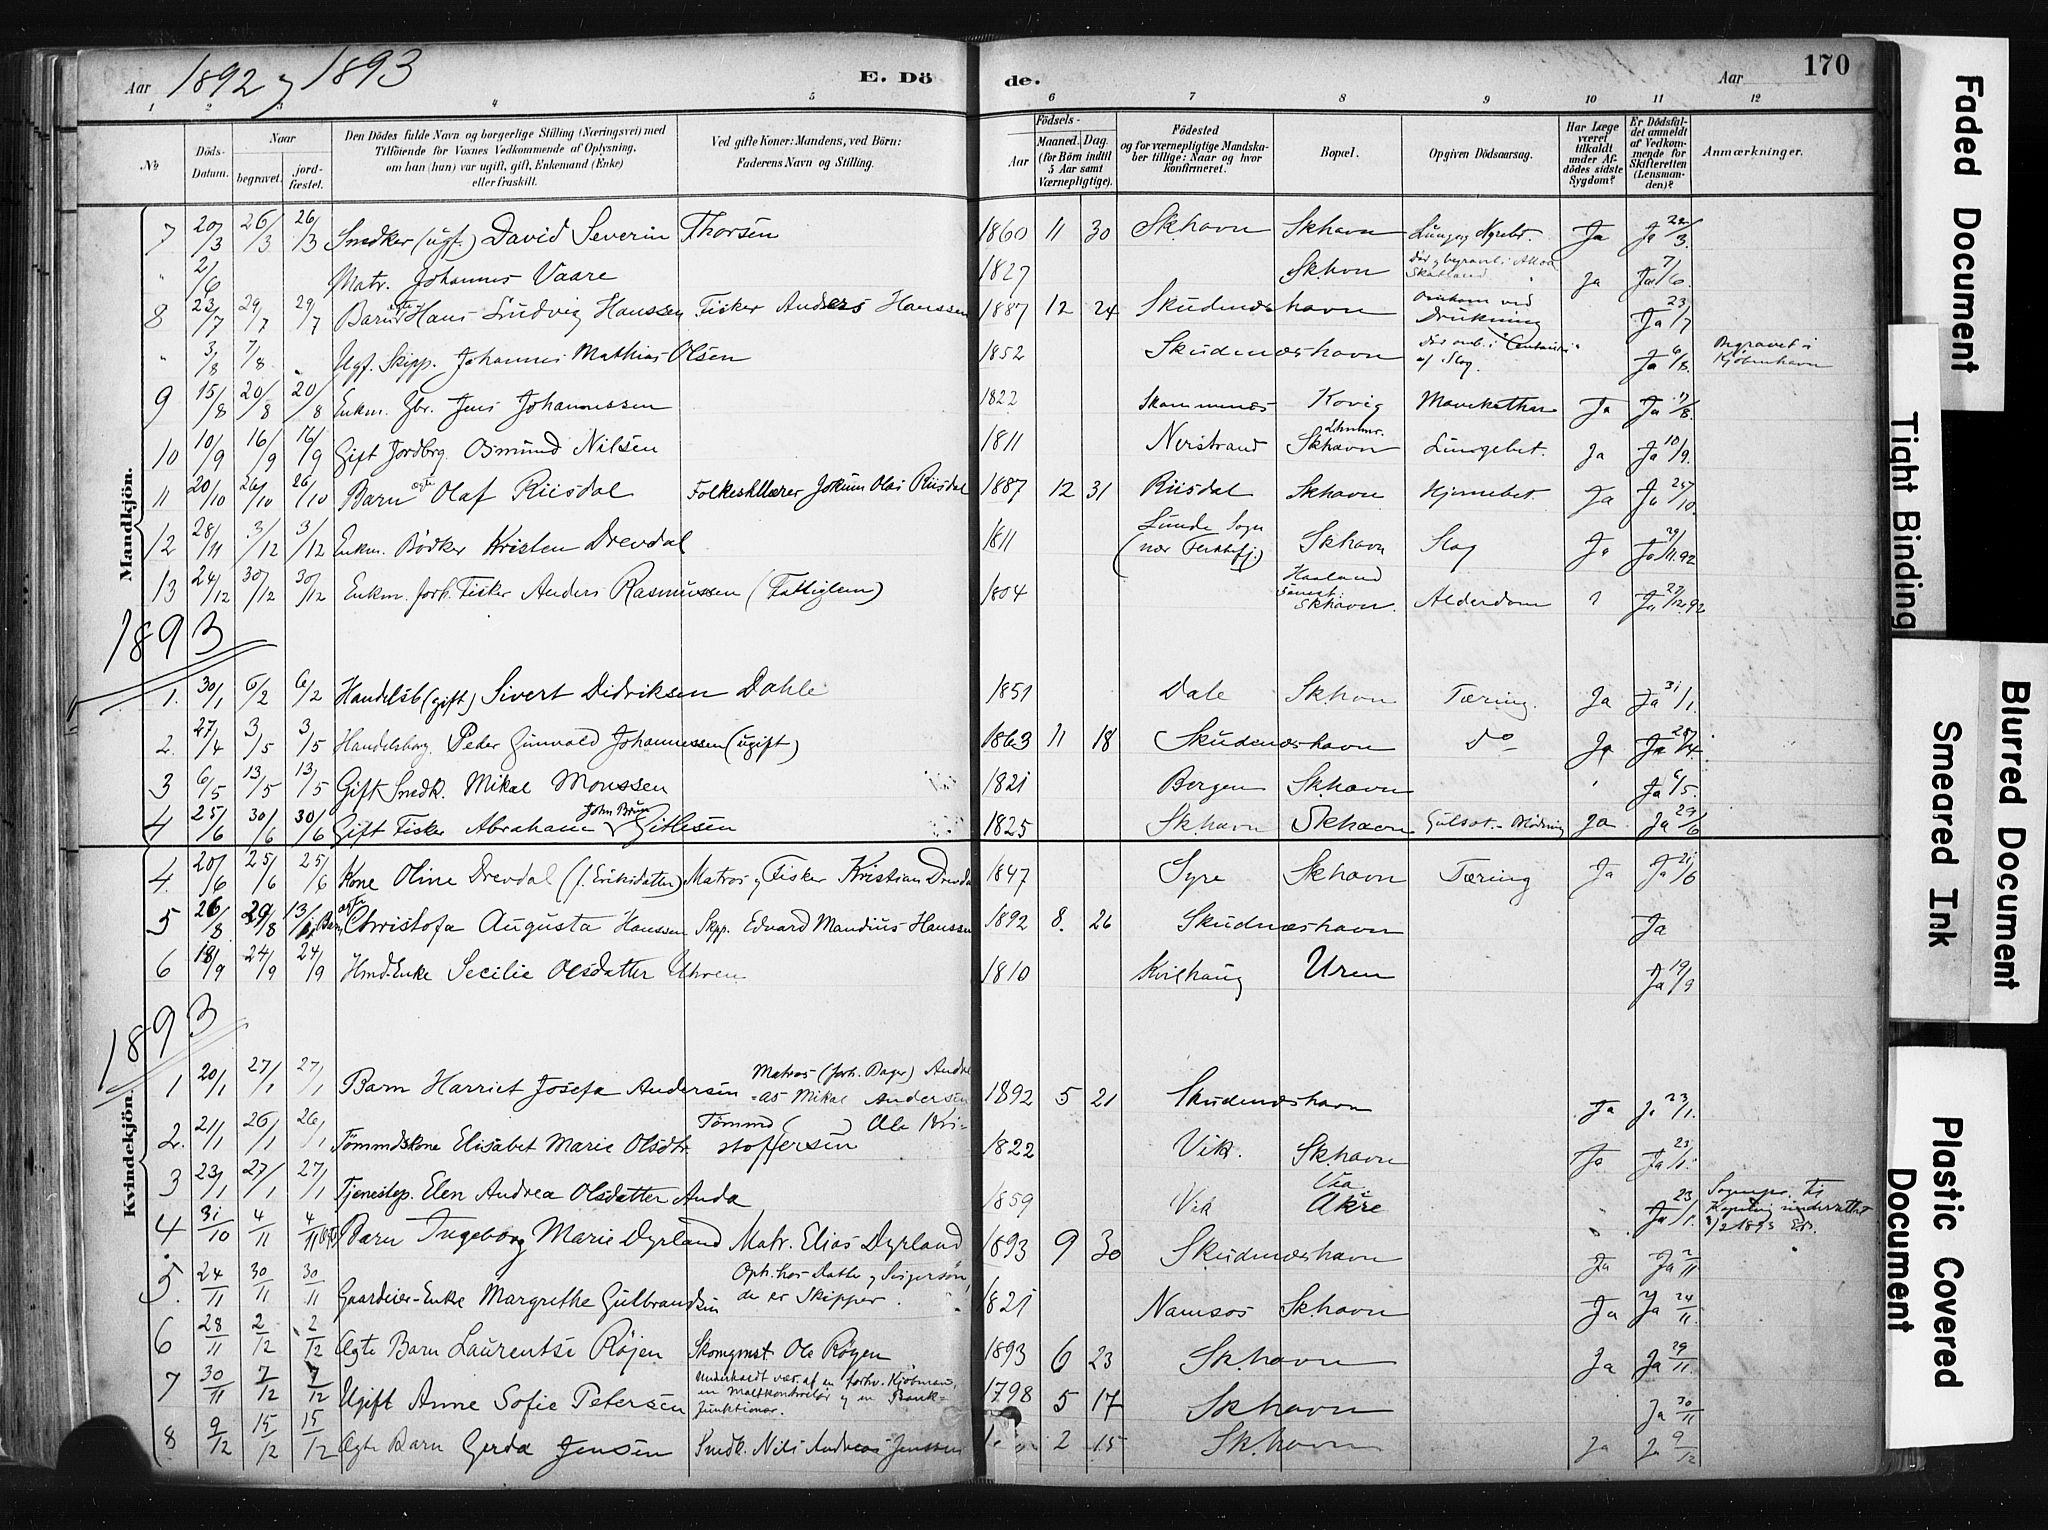 Aar 1892 og 1893 E. Döde. Aar 170
1 2 3 4 5 6 7 8 9 10 11 12
No
Döds-Datum.
Naar
begravet.
jord-fæstet.
Den Dödes fulde Navn og borgerlige Stilling (Næringsvei) med
Tilföiende for Voxnes Vedkommende af Oplysning,
om han (hun) var ugift, gift, Enkemand (Enke)
eller fraskilt.
Ved gifte Koner: Mandens, ved Börn:
Faderens Navn og Stilling.
Födsels-
Aar
Maaned. Dag.
(for Börn indtil
5 Aar samt
Værnepligtige).
Födested
og for værnepligtige Mandska-
ber tillige: Naar og hvor
konfirmeret.
Bopæl.
Opgiven Dödsaarsag.
Har Læge
været
tilkaldt
under Af-
dödes sidste
Sygdom?
Er Dödsfal-
det anmeldt
af Vedkom-
mende for
Skifteretten
(Lensman-
den)?
Anmærkninger.
Mandkjön.
7 20/3 26/3 26/3 Snedker (ugf.) David Severin Thorsen 1860 11 30 Sk.havn Skhavn Ja Ja 22/3
" 2/6 Matr. Johannes Vaare 1827 Sk.havn Ja Ja 7/6
8 23/7 29/7 29/7 Barn ægte Hans Ludvig Hanssen Fisker Anders Hanssen 1887 12 24 Skudenæshavn Omkom ved Drukning Ja 23/7
" 3/8 7/8 Ugf. Skipp. Johannes Mathias Olsen 1852 Skudenæshavn af Slag Ja 6/8 Begravet i Kjøbenhavn
9 15/8 20/8 20/8 Enkm. Gbr. Jens Johannessen 1822 Kovig Ja Ja 17/8
10 10/9 16/9 16/9 Gift Jordbrg. Osmund Nilsen 1811 Nerstrand Skhavn Lungebet. Ja Ja 10/9
11 20/10 26/10 26/10 Barn ægte Olaf Riisdal Folkeskllærer Jokum Olai Riisdal 1887 12 31 Riisdal Skhavn Hjernebet Ja Ja 25/10
12 28/11 3/12 3/12 Enkm. Bödker Kristen Drevdal 1811 Lunde Sogn (nær Flekkefj.) Skhavn Slag Ja Ja 29/11 92
13 24/12 30/12 30/12 Enkm. forh. Fisker Anders Rasmussen (Fattiglem) 1804 Skhavn. Alderdom ? Ja 27/12 92
1893
1. 30/1 6/2 6/2 Handelsb (gift) Sivert Didriksen Dahle 1851 Dale Sk.havn Tæring. Ja Ja 31/1
2. 27/4 3/5 3/5 Handelsborg. Peder Gunvald Johannessen (ugift) 1863 11 18 Skudenæshavn Do Ja Ja 28/4
3 6/5 13/5 13/5 Gift Snedk. Mikal Monssen 1821 Bergen Sk.havn Ja 6/5
4 25/6 30/6 30/6 Gift Fisker Abraham John Brun Gitlesen 1825 Sk.havn Skhavn Gulsot. Blödning Ja Ja 27/6
Kvindekjön.
4. 20/6 25/6 25/6 Kone Oline Drevdal (f. Eriksdatter) Matros og Fisker Kristian Drevdal 1847 Syre Skhavn Tæring Ja Ja 21/6
5 26/8 29/8 13/11 Barn ægte Christofa Augusta Hanssen Skpp. Edvard Mandius Hanssen 1892 8. 26 Skudenæshavn Ja
6 18/9 24/9 24/9 Hmd.Enke Secilie Olsdatter Uhren 1810 Kvilhaug Uren Ja 19/9
1893
1 20/1 27/1 27/1 Barn Harriet Josefa Andersen Matros (forh. Bager) Andreas Mikal Andersen 1892 5 21 Skudenæshavn Ja Ja 23/1
2. 21/1 26/1 26/1 Tömmdskone Elisabet Marie Olsdtr. Tömmd ( ) Ole Kristoffersen 1822 Vik. Sk.havn Ja Ja 23/1
3 23/1 27/1 27/1 Tjenestep. Elen Andrea Olsdatter Anda 1859 Vik Akre Ja 23/1 Sognepr. til Kopervig underrettet 8/2 1893
4 31/10 4/11 4/11 Barn Ingeborg Marie Dyrland Matr. Elias Dyrland 1893 9 30 Skudenæshavn Ja Ja 2/11
5. 24/11 30/11 30/11 Gaardeier-Enke Margrethe Gulbrandsen Oph. hos Datter og Svigersön, der er Skipper. 1821 Namsos Sk.havn Ja Ja 24/11
6 28/11 2/12 2/12 Ægte Barn Laurentse Röjen Skomgmst. Ole Röyen 1893 6 23 Sk.havn Ja Ja 29/11
7 30/11 7/12 7/12 Ugift Anne Sofie Petersen Underholdt væs. af en forhv. Kjöbmand, en Maltkontrolör og en Bank-funktionær. 1798 5 17 Sk.havn Ja 30/11
8 9/12 15/12 15/12 Ægte Barn Gerda Jensen Snedk. Nils Andreas Jenssen 2 15 Sk.havn Ja Ja 9/12
Faded Document
Tight Binding
Blurred Document
Smeared Ink
Plastic Covered
Document